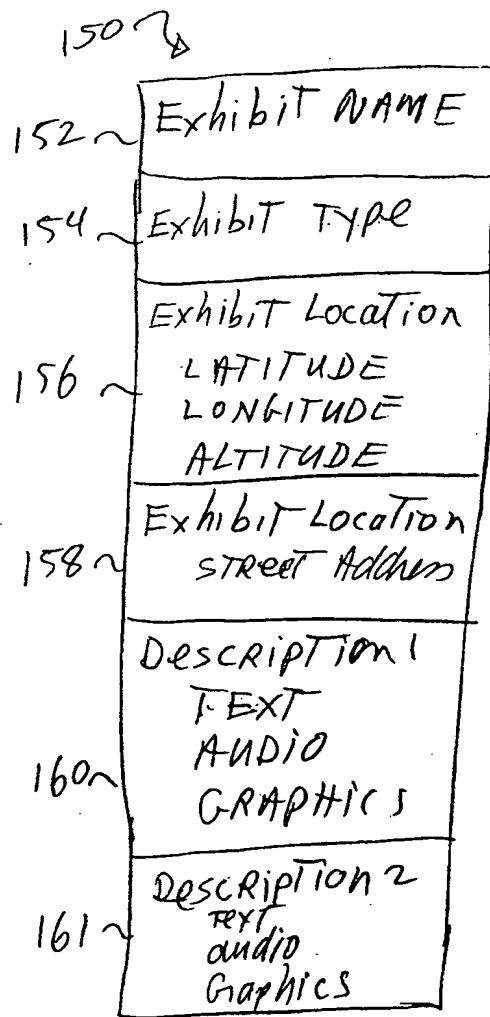 150
152 Exhibit NAME
154 Exhibit Type
Exhibit Location
LATITUDE
156 LONGITUDE
ALTITUDE
Exhibit Location
158 STREET Address
Description 1
TEXT
AUDIO
160 GRAPHICS
Description 2
Text
161 audio
Graphics